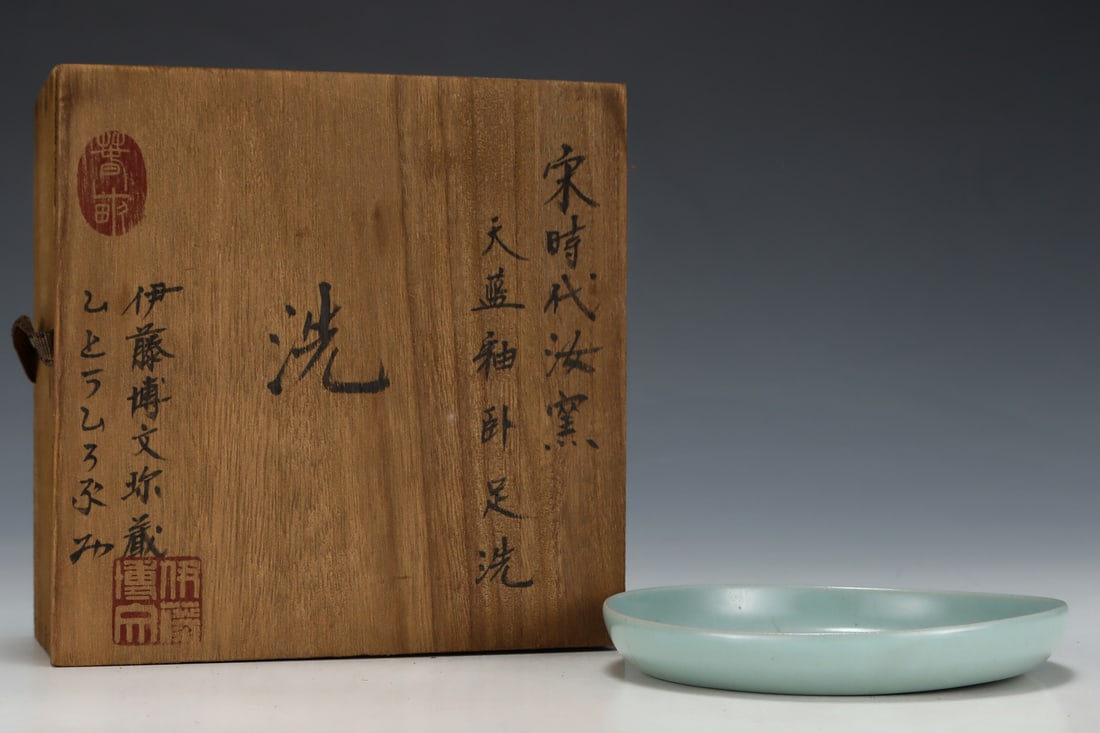 宋時代汝窯
天藍釉卧足洗
洗
伊藤博文珎蔵
伊藤博文